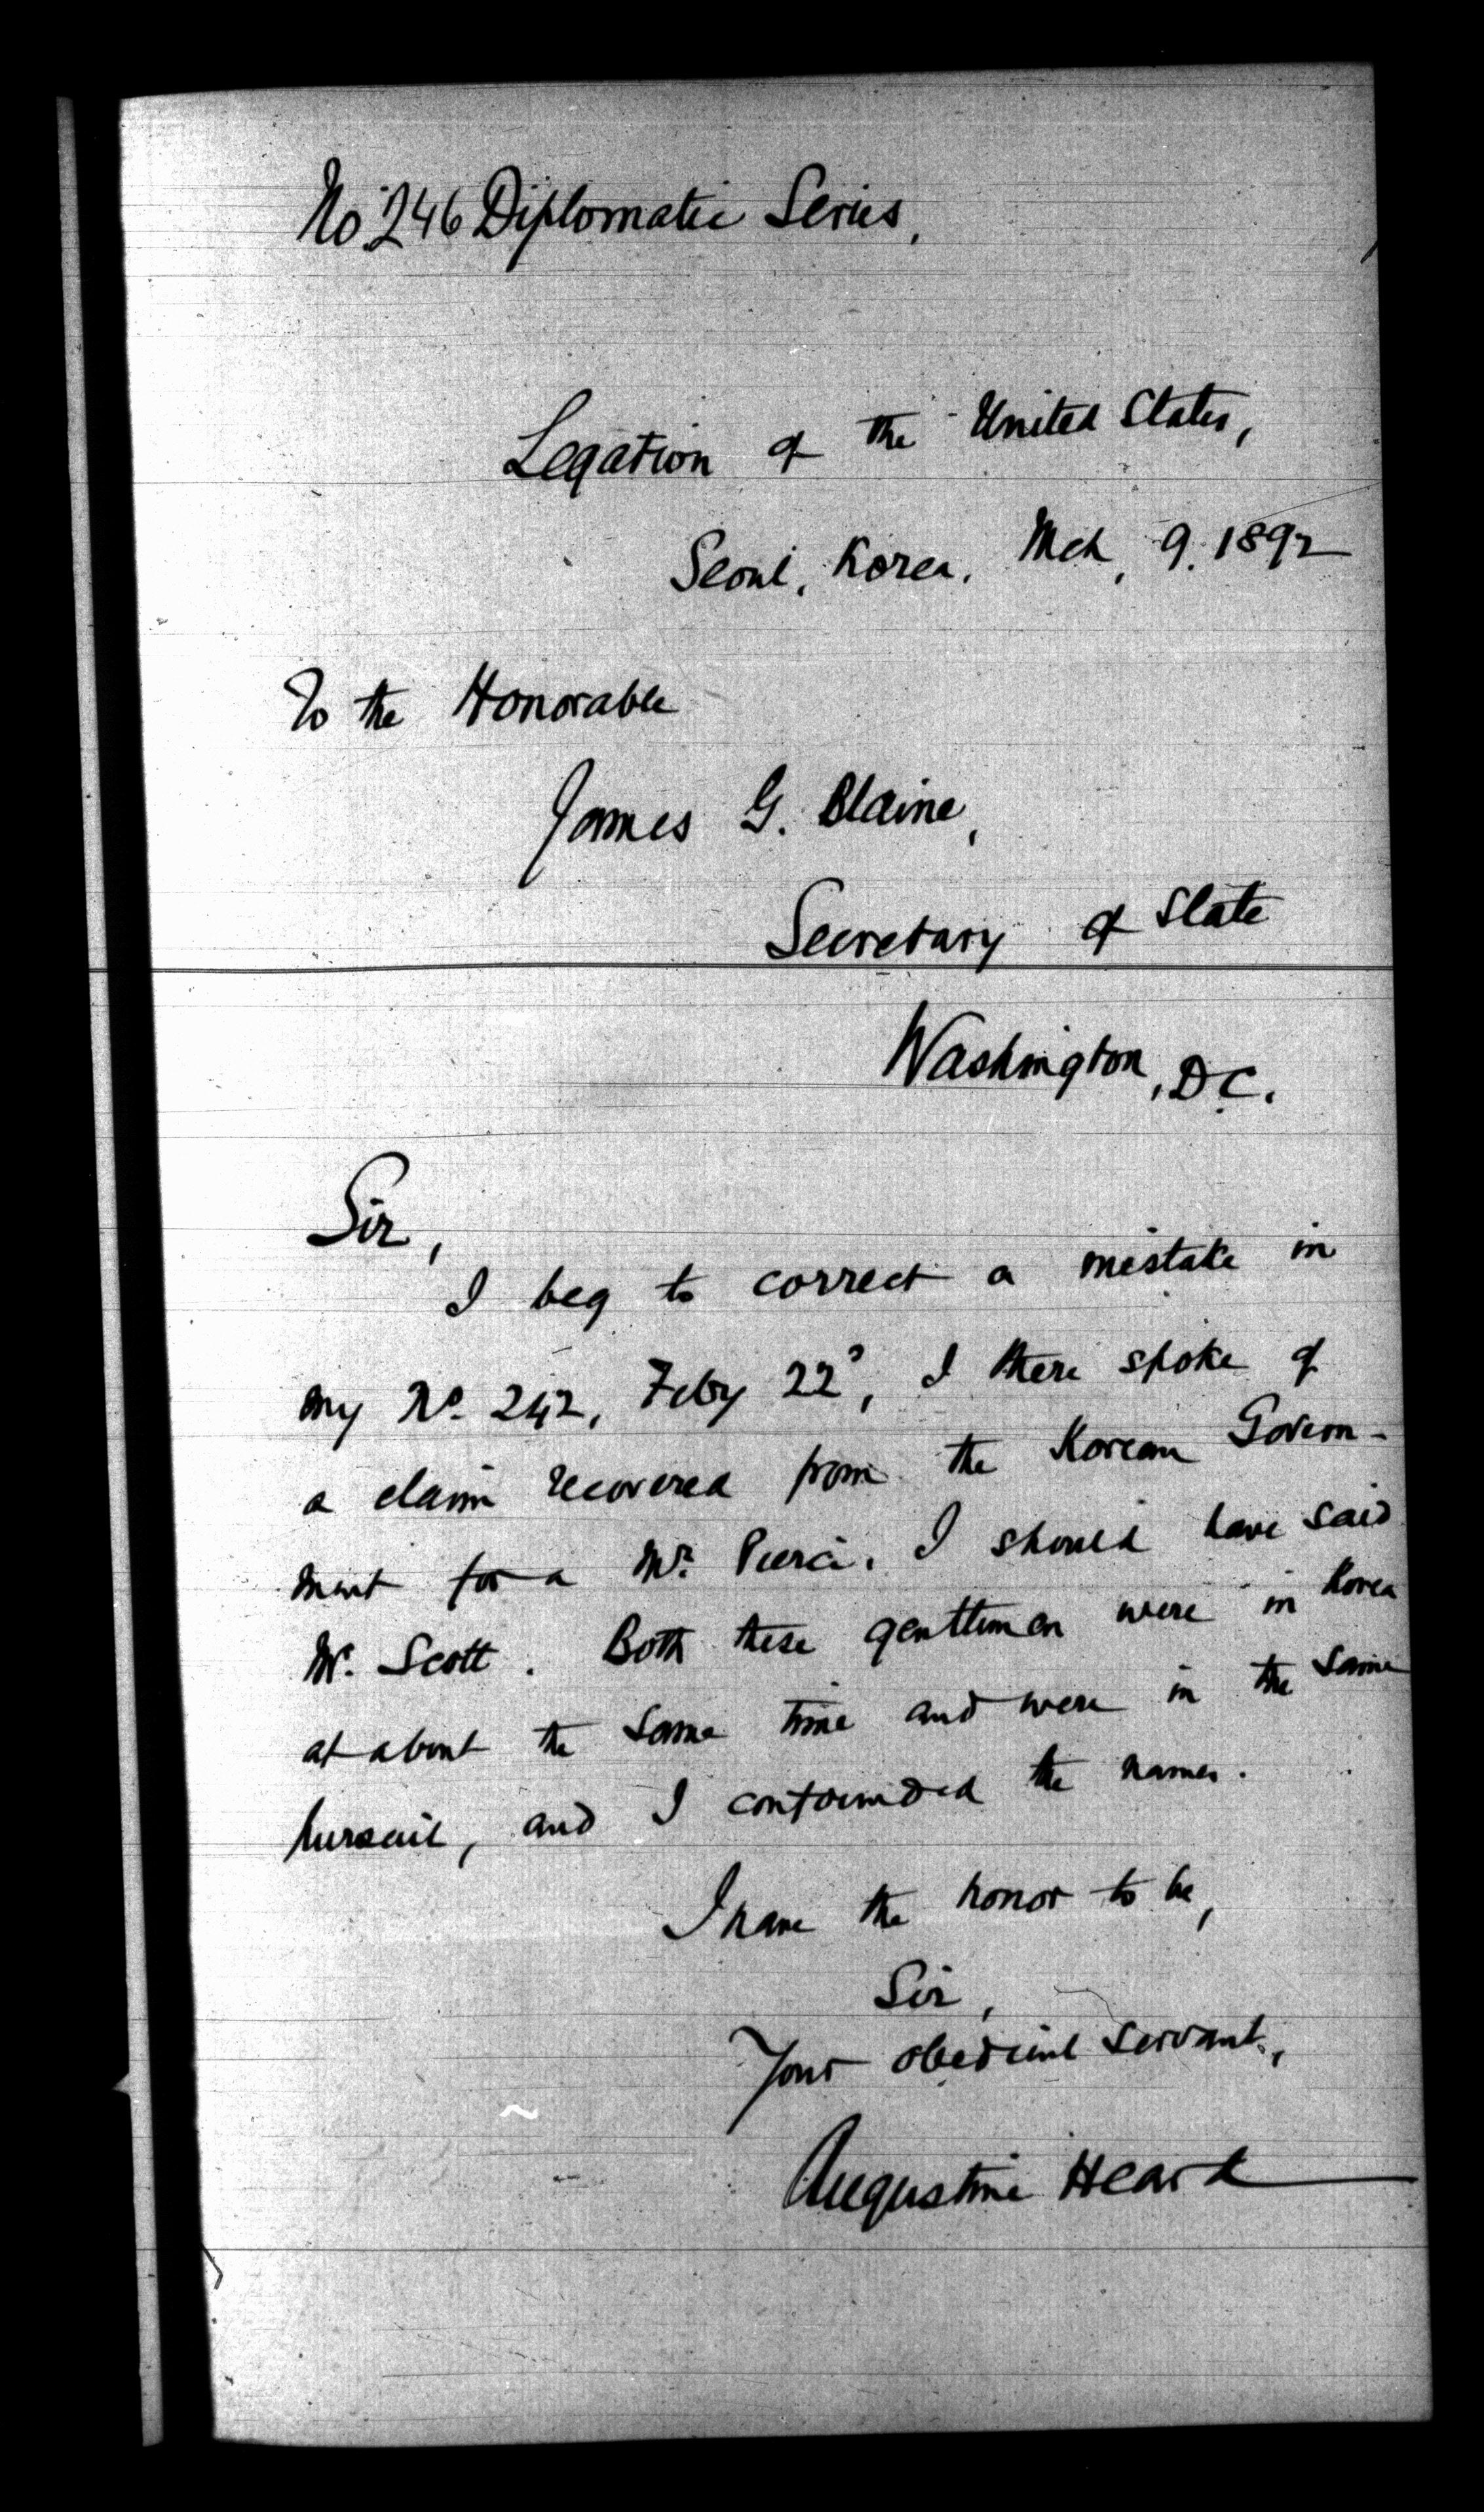 No 246 Diplomatic Series,
Legation of the United States,
Seoul, Korea, Mch, 9. 1892
To the Honorable
James G. Blaine,
Secretary of State
Washington, D.C.
Sir,
I beg to correct a mistake in
my No. 242, Feby 22d, I there spoke of
a claim recovered from the Korean Govern-
ment for a Mr. Pierce. I should have said
Mr. Scott. Both these gentlemen were in Korea
at about the same time and were in the same
pursuit, and I confounded the names.
I have the honor to be,
Sir,
Your obedient servant,
Augustine Heard